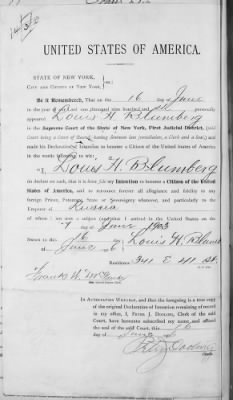 UNITED STATES OF AMERICA.
STATE OF NEW YORK,
CITY AND COUNTY OF NEW YORK, ss:
Be it Remembered, That on the 16 day of June
in the year of our Lord one thousand nine hundred and six personally
appeared Louis H. Blumberg
in the Supreme Court of the State of New York, First Judicial District, (said
Court being a Court of Record, having common law jurisdiction, a Clerk and a Seal,) and
made his Declaration of Intention to become a Citizen of the United States of America
in the words following, to wit:
"I, Louis H. Blumberg
do declare on oath, that it is bona fide my Intention to become a Citizen of the United
States of America, and to renounce forever all allegiance and fidelity to any
foreign Prince, Potentate, State or Sovereignty whatever, and particularly to the
Emperor of Russia
of whom I am a subject
I arrived in the United States on the
7 June 1903
Sworn to this 16
June 6
Louis H. Blumberg
341 E 41 St.
Frank W.
IN ATTESTATION WHEREOF, and that the foregoing is a true copy
of the original Declaration of Intention remaining of record in
my office, I, PETER J. DOOLING, Clerk of the said
Court, have hereunto subscribed my name, and affixed
the seal of the said Court, this 16
day of June 6
Peter J. Dooling